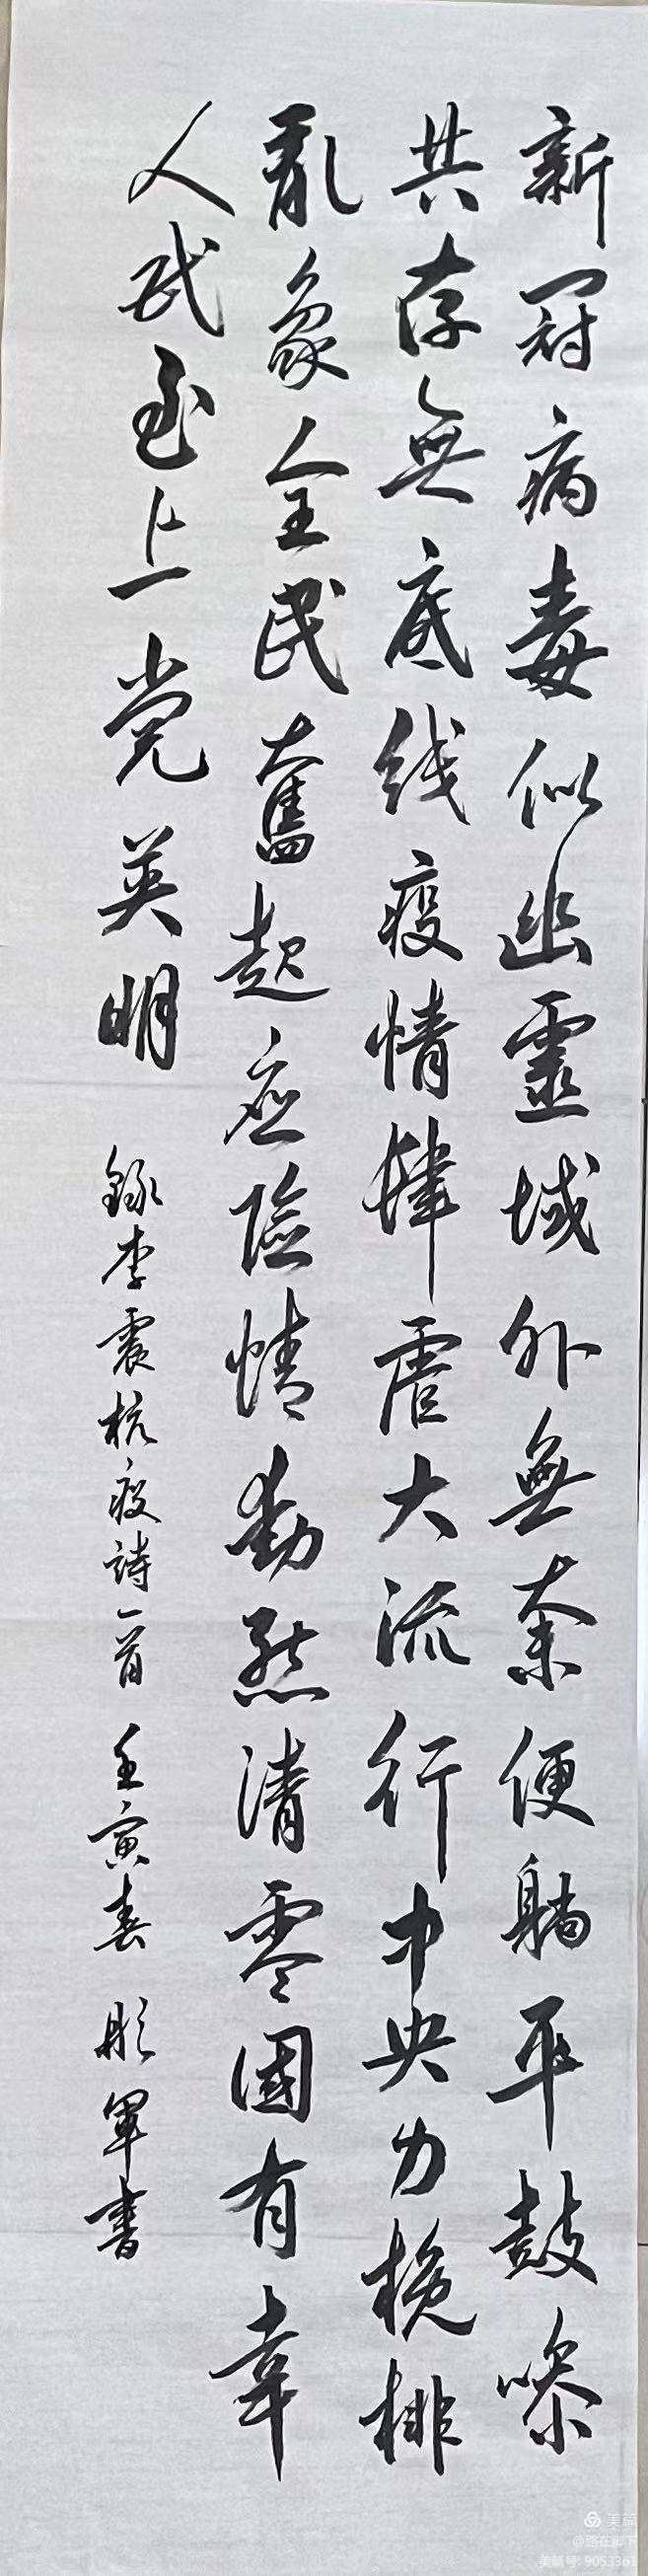 新冠病毒似幽靈域外無奈便躺平鼓噪
共存無底线疫情肆虐大流行中央力挽排
亂象全民奮起应险情動態清零國有幸
人民至上党英明
録李震抗疫詩一首 壬寅春 彤軍書
美篇
美篇号:9053361